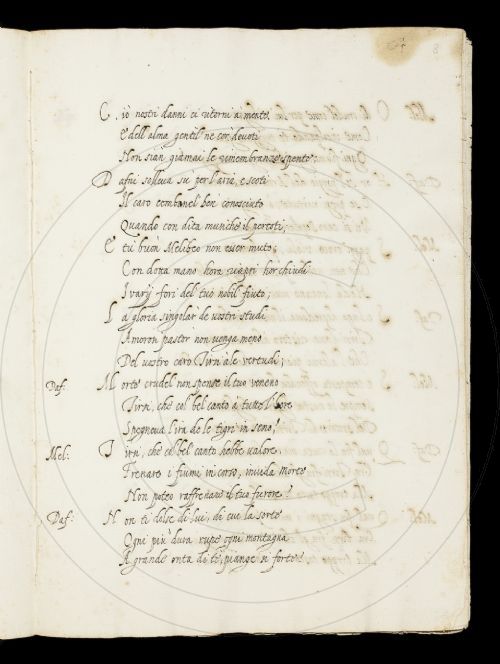 8
C iò nostri danni ci ritorni a mente
E dell'alma gentil ne cor devoti
Non sian giamai le rimembranze spente;
D afni solleva su per l'aria, e scoti
Il caro cembanel ben conosciuto
Quando con dita muniche il percoti;
E tu buon Melibeo non esser muto;
Con dotta mano hora riapri hor chiudi
I varij fori del tuo nobil fiuto;
L a gloria singolar de vostri studi
Amoron pastor non venga meno
Del vostro caro Tirsi à le vertudi;
Daf: M orte crudel non spense il tuo veneno
Tirsi, che col bel canto à tutte l'hore
Spegneva l'ira de le tigri in seno?
Mel: T irsi, che col bel canto hebbe valore,
Frenare i fiumi in corso, invida Morte
Non poteo raffrenare il tuo furore?
Daf: N on ti dolse di lui, di cui la sorte
Ogni più dura rupe ogni montagna
A grande onta di te, piange sì forte?